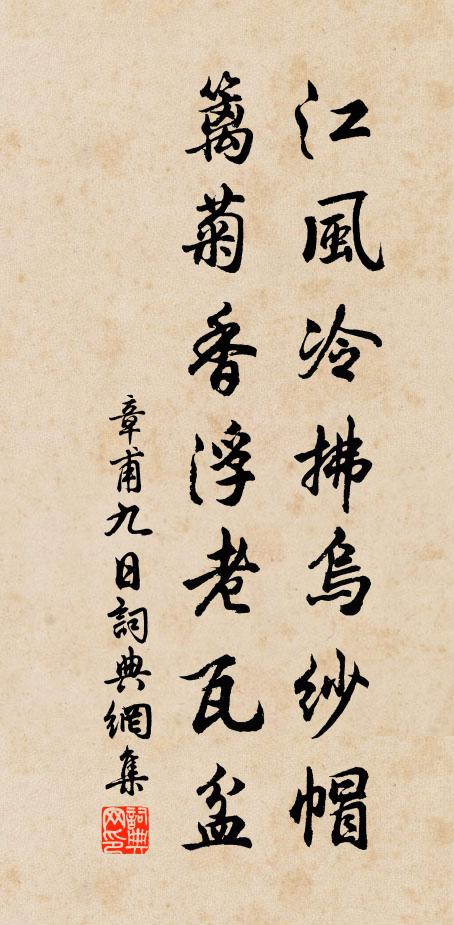 江風冷拂烏紗帽
籬菊香浮老瓦盆
章甫九日詞典網集
詞典网印